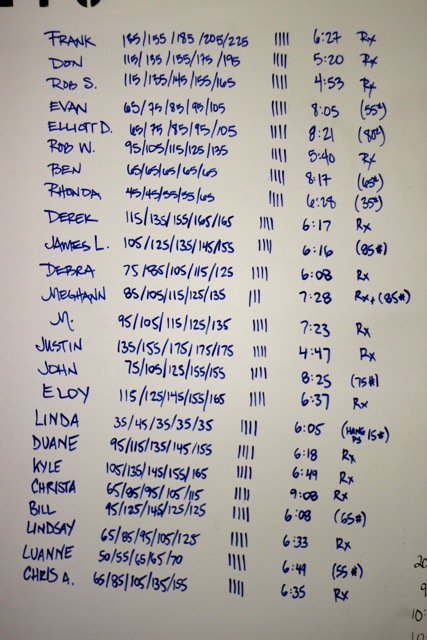 FRANK 135/155/185/205/225 |||| 6:27 Rx
DON 115/135/155/175/195 |||| 5:20 Rx
ROB S. 115/135/145/155/165 |||| 4:53 Rx
EVAN 65/75/85/95/105 |||| 8:05 (55#)
ELLIOTT D. 65/75/85/95/105 |||| 8:21 (80#)
ROB W. 95/105/115/125/135 |||| 5:40 Rx
BEN 65/65/65/65/65 |||| 8:17 (65#)
RHONDA 45/45/55/55/65 |||| 6:28 (35#)
DEREK 115/135/155/165/165 |||| 6:17 Rx
JAMES L. 105/125/135/145/155 |||| 6:16 (85#)
DEBRA 75/85/105/115/125 |||| 6:08 Rx
MEGHANN 85/105/115/125/135 ||| 7:28 Rx+(85#)
M. 95/105/115/125/135 |||| 7:23 Rx
JUSTIN 135/155/175/175/175 |||| 4:47 Rx
JOHN 75/105/125/155/155 |||| 8:25 (75#)
ELOY 115/125/145/155/165 |||| 6:37 Rx
LINDA 35/45/35/35/35 |||| 6:05 (HANG PS 15#)
DUANE 95/115/135/145/155 |||| 6:18 Rx
KYLE 105/135/145/155/165 |||| 6:49 Rx
CHRISTA 65/85/95/105/115 |||| 9:08 Rx
BILL 95/125/145/125/125 |||| 6:08 (65#)
LINDSAY 65/85/95/105/125 |||| 6:33 Rx
LUANNE 50/55/65/65/70 |||| 6:49 (55#)
CHRIS A. 65/85/105/135/155 |||| 6:35 Rx
20
9
10: